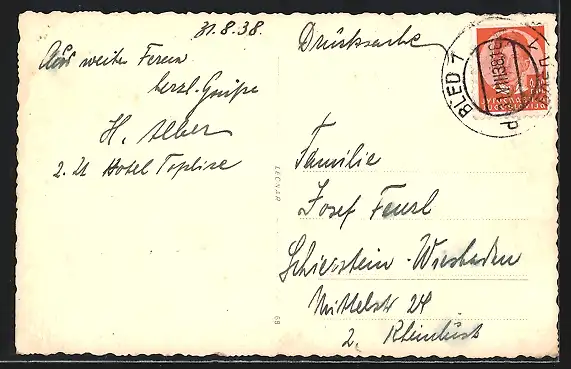 31.8.38.
Drucksache
Aus weiter Ferne
herzl. Grüße
H. Alber
z. Zt Hotel Toplice
Familie
Josef Feurl
Schierstein-Wiesbaden
Mittelstr 24
z. Rheinlust
LEGVAR
68
BLED 1